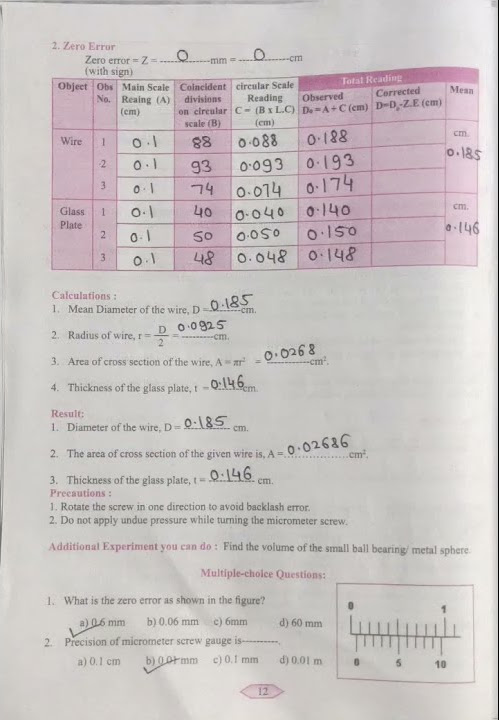 2. Zero Error
Zero error = Z = 0 mm = 0 cm
(with sign)
Object Obs No. Main Scale Reaing (A) (cm) Coincident divisions on circular scale (B) circular Scale Reading C = (B x L.C) (cm) Total Reading Observed D₀=A+C (cm) Corrected D=D₀-Z.E (cm) Mean
Wire 1 0.1 88 0.088 0.188 cm.
2 0.1 93 0.093 0.193 0.185
3 0.1 74 0.074 0.174
Glass Plate 1 0.1 40 0.040 0.140 cm.
2 0.1 50 0.050 0.150 0.146
3 0.1 48 0.048 0.148
Calculations :
1. Mean Diameter of the wire, D = 0.185 cm.
2. Radius of wire, r = D/2 = 0.0925 cm.
3. Area of cross section of the wire, A = πr² = 0.0268 cm².
4. Thickness of the glass plate, t = 0.146 cm.
Result:
1. Diameter of the wire, D = 0.185 cm.
2. The area of cross section of the given wire is, A = 0.02686 cm².
3. Thickness of the glass plate, t = 0.146 cm.
Precautions :
1. Rotate the screw in one direction to avoid backlash error.
2. Do not apply undue pressure while turning the micrometer screw.
Additional Experiment you can do : Find the volume of the small ball bearing/ metal sphere.
Multiple-choice Questions:
1. What is the zero error as shown in the figure?
a) 0.6 mm b) 0.06 mm c) 6mm d) 60 mm
2. Precision of micrometer screw gauge is----------.
a) 0.1 cm b) 0.01 mm c) 0.1 mm d) 0.01 m
0 1
0 5 10
12